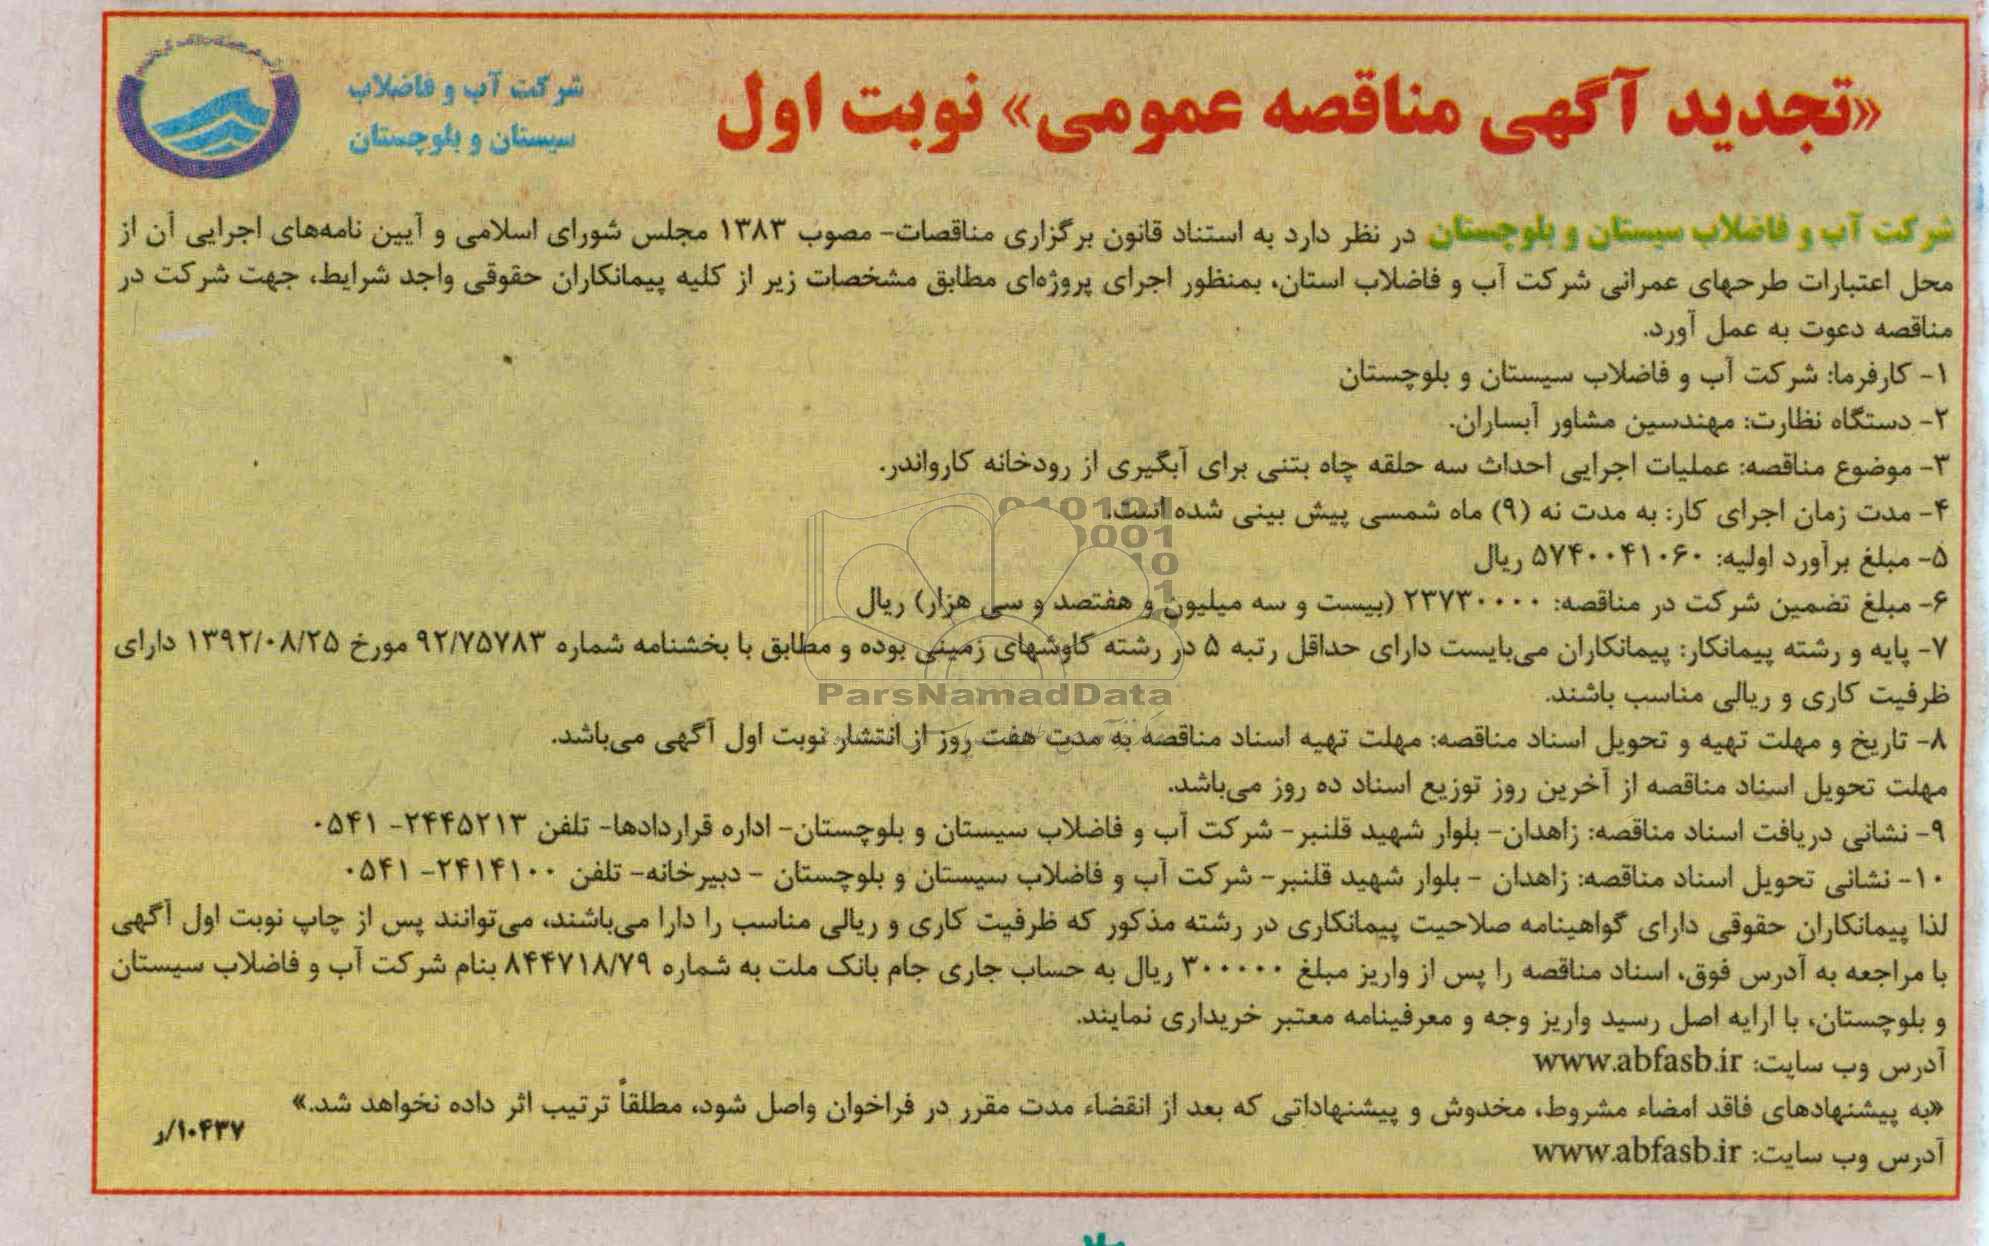 «تجدید آگهی مناقصه عمومی» نوبت اول
شرکت آب و فاضلاب
سیستان و بلوچستان
شرکت آب و فاضلاب سیستان و بلوچستان در نظر دارد به استناد قانون برگزاری مناقصات- مصوب ۱۳۸۳ مجلس شورای اسلامی و آیین نامه‌های اجرایی آن از
محل اعتبارات طرحهای عمرانی شرکت آب و فاضلاب استان، بمنظور اجرای پروژه‌ای مطابق مشخصات زیر از کلیه پیمانکاران حقوقی واجد شرایط، جهت شرکت در
مناقصه دعوت به عمل آورد.
۱- کارفرما: شرکت آب و فاضلاب سیستان و بلوچستان
۲- دستگاه نظارت: مهندسین مشاور آبساران.
۳- موضوع مناقصه: عملیات اجرایی احداث سه حلقه چاه بتنی برای آبگیری از رودخانه کارواندر.
۴- مدت زمان اجرای کار: به مدت نه (۹) ماه شمسی پیش بینی شده است.
۵- مبلغ برآورد اولیه: ۵۷۴۰۰۴۱۰۶۰ ریال
۶- مبلغ تضمین شرکت در مناقصه: ۲۳۷۳۰۰۰۰ (بیست و سه میلیون و هفتصد و سی هزار) ریال
۷- پایه و رشته پیمانکار: پیمانکاران می‌بایست دارای حداقل رتبه ۵ در رشته کاوشهای زمینی بوده و مطابق با بخشنامه شماره ۹۲/۷۵۷۸۳ مورخ ۱۳۹۲/۰۸/۲۵ دارای
ظرفیت کاری و ریالی مناسب باشند.
ParsNamadData
۸- تاریخ و مهلت تهیه و تحویل اسناد مناقصه: مهلت تهیه اسناد مناقصه به مدت هفت روز از انتشار نوبت اول آگهی می‌باشد.
مهلت تحویل اسناد مناقصه از آخرین روز توزیع اسناد ده روز می‌باشد.
۹- نشانی دریافت اسناد مناقصه: زاهدان- بلوار شهید قلنبر- شرکت آب و فاضلاب سیستان و بلوچستان- اداره قراردادها- تلفن ۲۴۴۵۲۱۳- ۰۵۴۱
۱۰- نشانی تحویل اسناد مناقصه: زاهدان - بلوار شهید قلنبر- شرکت آب و فاضلاب سیستان و بلوچستان - دبیرخانه- تلفن ۲۴۱۴۱۰۰- ۰۵۴۱
لذا پیمانکاران حقوقی دارای گواهینامه صلاحیت پیمانکاری در رشته مذکور که ظرفیت کاری و ریالی مناسب را دارا می‌باشند، می‌توانند پس از چاپ نوبت اول آگهی
با مراجعه به آدرس فوق، اسناد مناقصه را پس از واریز مبلغ ۳۰۰۰۰۰ ریال به حساب جاری جام بانک ملت به شماره ۸۴۴۷۱۸/۷۹ بنام شرکت آب و فاضلاب سیستان
و بلوچستان، با ارایه اصل رسید واریز وجه و معرفینامه معتبر خریداری نمایند.
آدرس وب سایت: www.abfasb.ir
«به پیشنهادهای فاقد امضاء مشروط، مخدوش و پیشنهاداتی که بعد از انقضاء مدت مقرر در فراخوان واصل شود، مطلقاً ترتیب اثر داده نخواهد شد.»
۱۰۴۳۷/ر
آدرس وب سایت: www.abfasb.ir